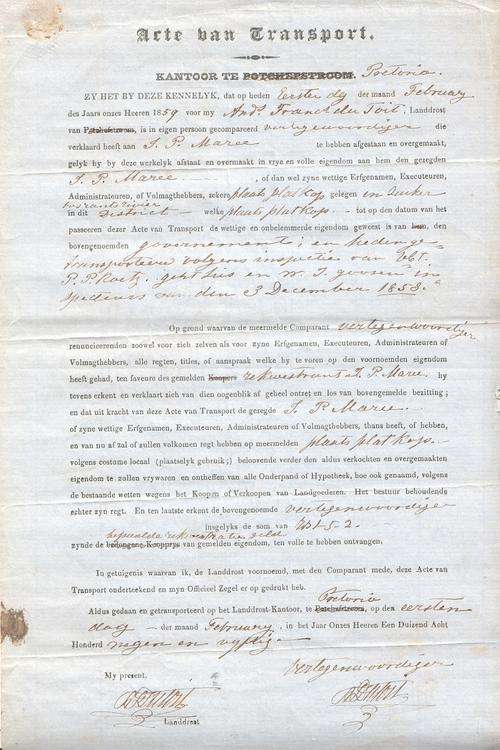 Acte van Transport.
KANTOOR TE POTCHEFSTROOM. Pretoria.
ZY HET BY DEZE KENNELYK, dat op heden Eerste dag der maand February
des Jaars onzes Heeren 1859 voor my And. Franc. du Toit, Landdrost
van Potchefstroom, is in eigen persoon gecompareerd vertegenwoordiger die
verklaard heeft aan J. P. Maree te hebben afgestaan en overgemaakt,
gelyk hy by deze werkelyk afstaat en overmaakt in vrye en volle eigendom aan hem den geregden
J. P. Maree , of dan wel zyne wettige Erfgenamen, Executeuren,
Administrateuren, of Volmagthebbers, zekere plaats platkop gelegen in
in dit District welke plaats platkop. tot op den datum van het
passeeren dezer Acte van Transport de wettige en onbelemmerde eigendom geweest is van hem, den
bovengenoemden governement; en heden ge-
transporteerd volgens inspectie van
P. P. en W. J. in
van den 3 December 1858.
Op grond waarvan de meermelde Comparant vertegenwoordiger
renuncieerenden zoowel voor zich zelven als voor zyne Erfgenamen, Executeuren, Administrateuren of
Volmagthebbers, alle regten, titles, of aanspraak welke hy te voren op den voornoemden eigendom
heeft gehad, ten faveure des gemelden Koopers rekwestrant J. P. Maree. hy
tevens erkent en verklaart zich van dien oogenblik af geheel ontzet en los van bovengemelde bezitting;
en dat uit kracht van deze Acte van Transport de geregde J. P. Maree.
of zyne wettige Erfgenamen, Executeuren, Administrateuren of Volmagthebbers, thans heeft, of hebben,
en van nu af zal of zullen volkomen regt hebben op meermelden plaats platkop.
volgens costume locaal (plaatselyk gebruik;) beloovende verder den aldus verkochten en overgemaakten
eigendom te zullen vrywaren en ontheffen van alle Onderpand of Hypotheek, hoe ook genaamd, volgens
de bestaande wetten wegens het Koopen of Verkoopen van Landgoederen. Het bestuur behoudende
echter zyn regt. En ten laatste erkent de bovengenoemde vertegenwoordiger
insgelyks de som van
bepaalde registratie geld
zynde de bedongene Koopprys van gemelden eigendom, ten volle te hebben ontvangen.
In getuigenis waarvan ik, de Landdrost voornoemd, met den Comparant mede, deze Acte van
Transport onderteekend en myn Officieel Zegel er op gedrukt heb.
Pretoria
Aldus gedaan en getransporteerd op het Landdrost-Kantoor, te Potchefstroom, op den eersten
dag der maand February, in het Jaar Onzes Heeren Een Duizend Acht
Honderd negen en vyftig.
vertegenwoordiger
My present.
Landdrost